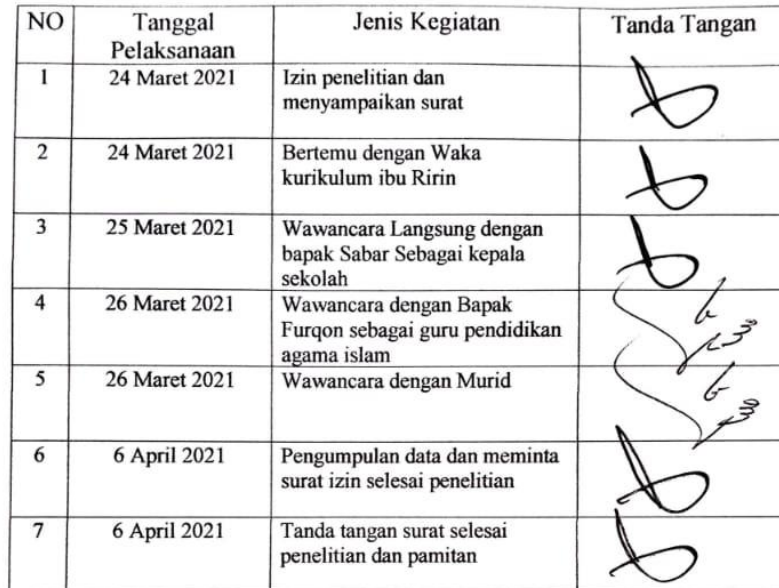 NO Tanggal Pelaksanaan Jenis Kegiatan Tanda Tangan
1 24 Maret 2021 Izin penelitian dan
menyampaikan surat
2 24 Maret 2021 Bertemu dengan Waka
kurikulum ibu Ririn
3 25 Maret 2021 Wawancara Langsung dengan
bapak Sabar Sebagai kepala
sekolah
4 26 Maret 2021 Wawancara dengan Bapak
Furqon sebagai guru pendidikan
agama islam
5 26 Maret 2021 Wawancara dengan Murid
6 6 April 2021 Pengumpulan data dan meminta
surat izin selesai penelitian
7 6 April 2021 Tanda tangan surat selesai
penelitian dan pamitan